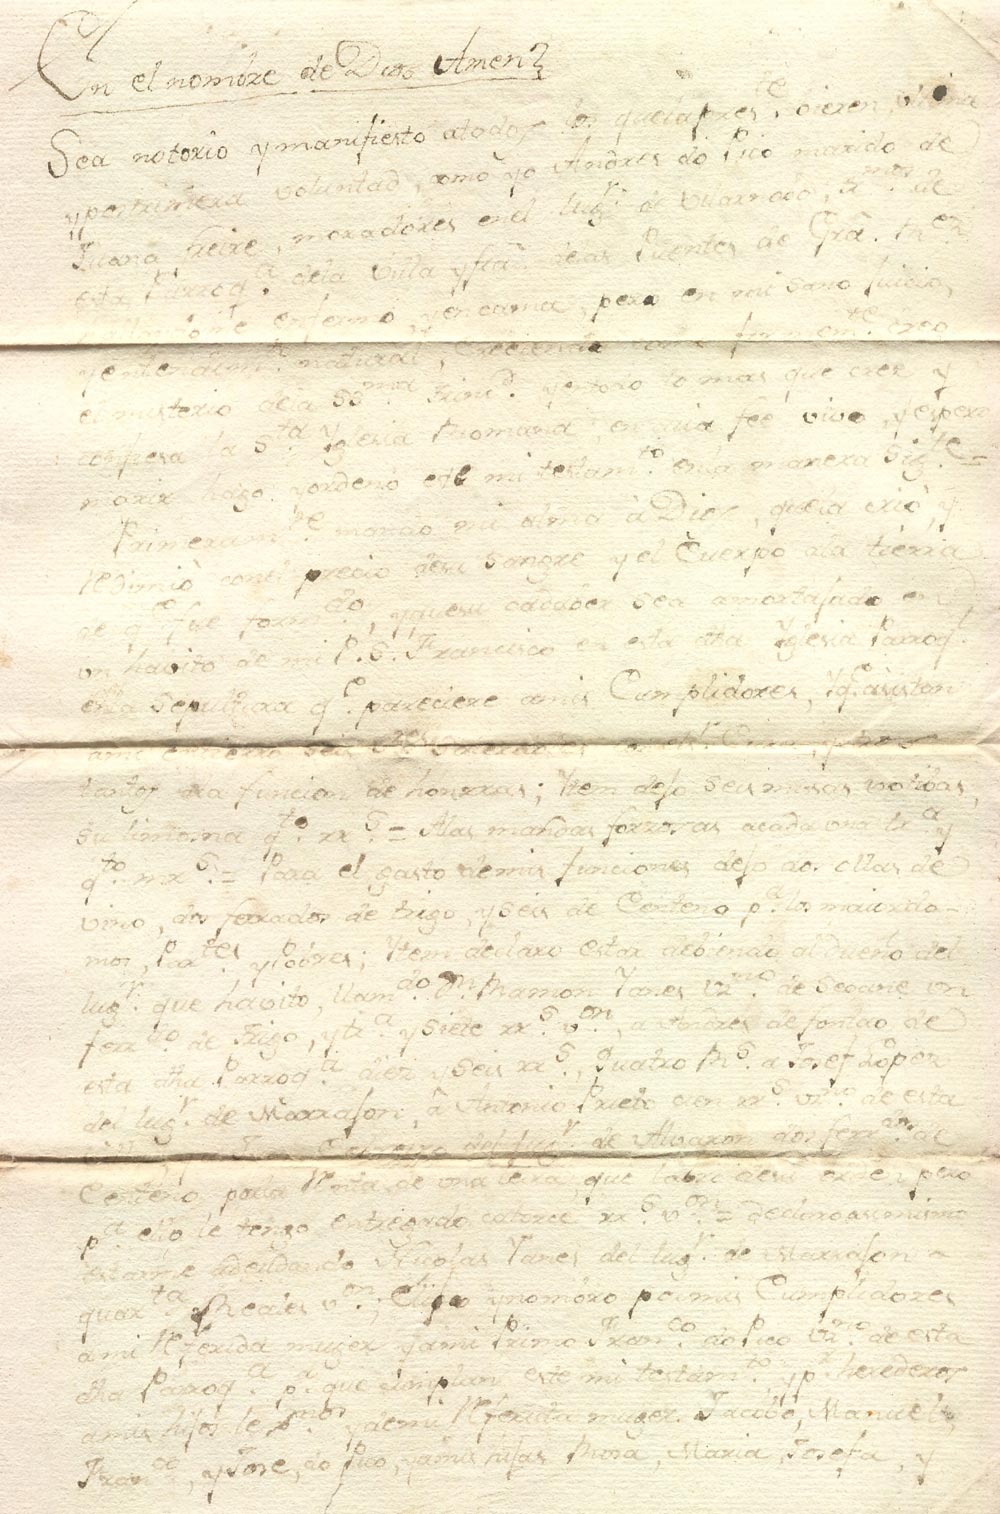 En el nombre de Dios Amen
Sea notorio y manifiesto atodos los quelapres.te vieren, ultima
y postrimera voluntad, como yo Andres do Pico marido de
Juana freire, moradores en el lug.r de Vilarnobo, de
esta Parroq.a dela Villa yfra delas Puentes de Gra.
enfermo, y en cama, pero en mi sano juicio,
y entendim.to natural, Creciendo como firmem.te creo
el misterio dela SS.ma Trini.d yentodo lo mas que cree y
confiesa la S.ta Yglesia Romana, en cuia fee vivo, yespero
morir hago yordeno este mi testam.to enla manera Sig.te =
Primeram.te mando mi alma â Dios, quela criò, y
redimiò conel precio desu sangre y el Cuerpo ala tierra
de q.e fue form.do, yquesu cadaber sea amortajado en
un havito de mi P. S. Francisco en esta dha Yglesia Parroq.l
enla sepultura q.e pareciere amis Cumplidores, Yq.e asistan
ami entierro seis Sacerdotes con el Cura, yotros
tantos ala funcion de honrras; Ytem dejo seis misas votibas,
su limosna q.to rr.s = Alas mandas forzosas acada una tr.a y
q.to mr.s = Para el gasto demis funciones dejo dos ollas de
vino, dos ferrados de trigo, y seis de Centeno p.a los maiordo-
mos, Par.tes y Pobres; Ytem declaro estar debiendo al Dueño del
lug.r que havito, llam.do D.n Ramon Yanes vz.no de Seoane un
ferr.do de Trigo, ytr.a y siete rr.s v.on, a Andres de fontao de
esta dha Parroq.a diez y seis rr.s, Quatro R.s a Josef Lopez
del lug.r de Marrason, â Antonio Prieto cien rr.s vz.no de esta
del lug.r de Alvaron dos ferr.dos de
Centeno porla Renta de una leira, que labre desu orden, pero
p.a ello le tengo entregado catorce rr.s v.on = declaro asimismo
estarme adeudando Nicolas Yanes del lug.r de Marrason a
quar.ta Reales v.on; Elijo ynombro por mis Cumplidores
ami Referida muger yami Primo Fran.co do Pico vz.no de esta
dha Parroq.a p.a que cumplan este mi testam.to yp.r herederos
amis hijos le.mos y demi Referida muger Jacibo, Manuel,
Fran.co, y Jose, do Pico, yamis hijas Rosa, Maria, Josefa, y